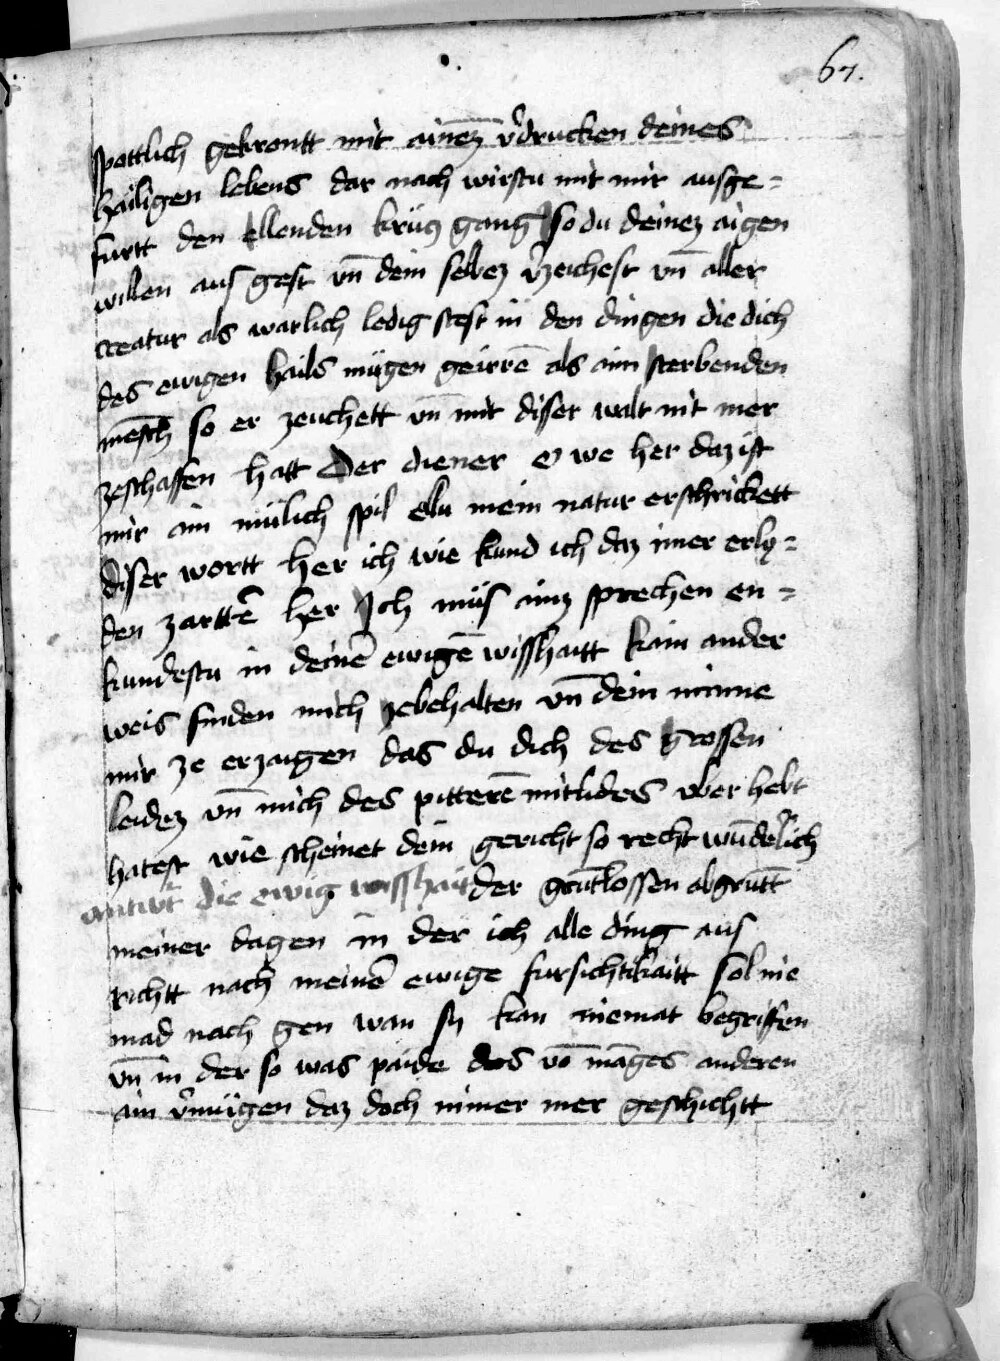 67.
spottlich gekrontt mit ainez v̄drucken deines
hailigen lebens dar nach wirstu mit mir ausge=
furtt den ellenden krücz gang so du deinez aigen
willen aus gest vn̄ dein selbez v̄zeichest vn̄ aller
creatur als warlich ledig stest in den dingen die dich
des ewigen hails mügen geirrē als ain sterbenden
mēsch so er zeuchett vn̄ mit disser walt nit mer
zeschaffen hatt Der diener O we her daz ist
mir ain mülich spil elu mein natur erschrickett
diser wortt her ich wie kund ich daz imer erly=
den zarttē her Ich müs ainz sprechen en=
kundestu in deinē ewigē wisshaitt kain ander
weis finden mich zebehalten vn̄ dein minne
mir ze erzaigen das du dich des grossen
leidez vn̄ mich des pitterē mitlides vber hebt
hatest wie scheinet dein gericht so recht wūderlich
antwt die ewig wisshait der grūtlossen abgrūtt
meiner dagen in der ich alle ding aus
richtt nach meinē ewige fursichtikaitt sol nie
mad nach gen wan sy kan niemat begriffen
vn̄ in der so was paide das vn̄ māges anderen
ain v̄mügen daz doch nimer mer geschichtt